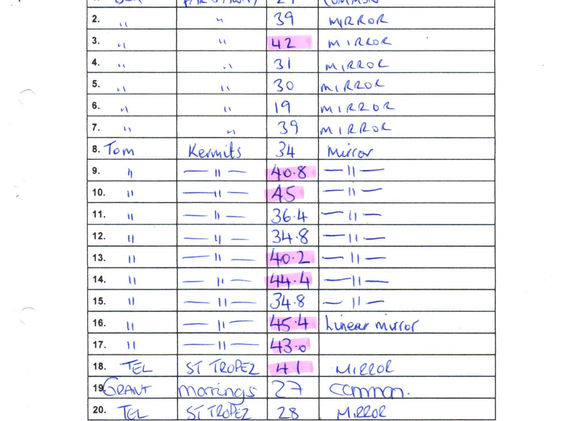 2. ,, ,, 39 MIRROR
3. ,, ,, 42 MIRROR
4. ,, ,, 31 MIRROR
5. ,, ,, 30 MIRROR
6. ,, ,, 19 MIRROR
7. ,, ,, 39 MIRROR
8. Tom Kermits 34 Mirror
9. " — " — 40.8 — " —
10. " — " — 45 — " —
11. " — " — 36.4 — " —
12. " — " — 34.8 — " —
13. " — " — 40.2 — " —
14. " — " — 44.4 — " —
15. " — " — 34.8 — " —
16. " — " — 45.4 Linear mirror
17. " — " — 43.0
18. TEL ST TROPEZ 41 MIRROR
19. GRANT Morrings 27 Common.
20. TEL ST TROPEZ 28 MIRROR